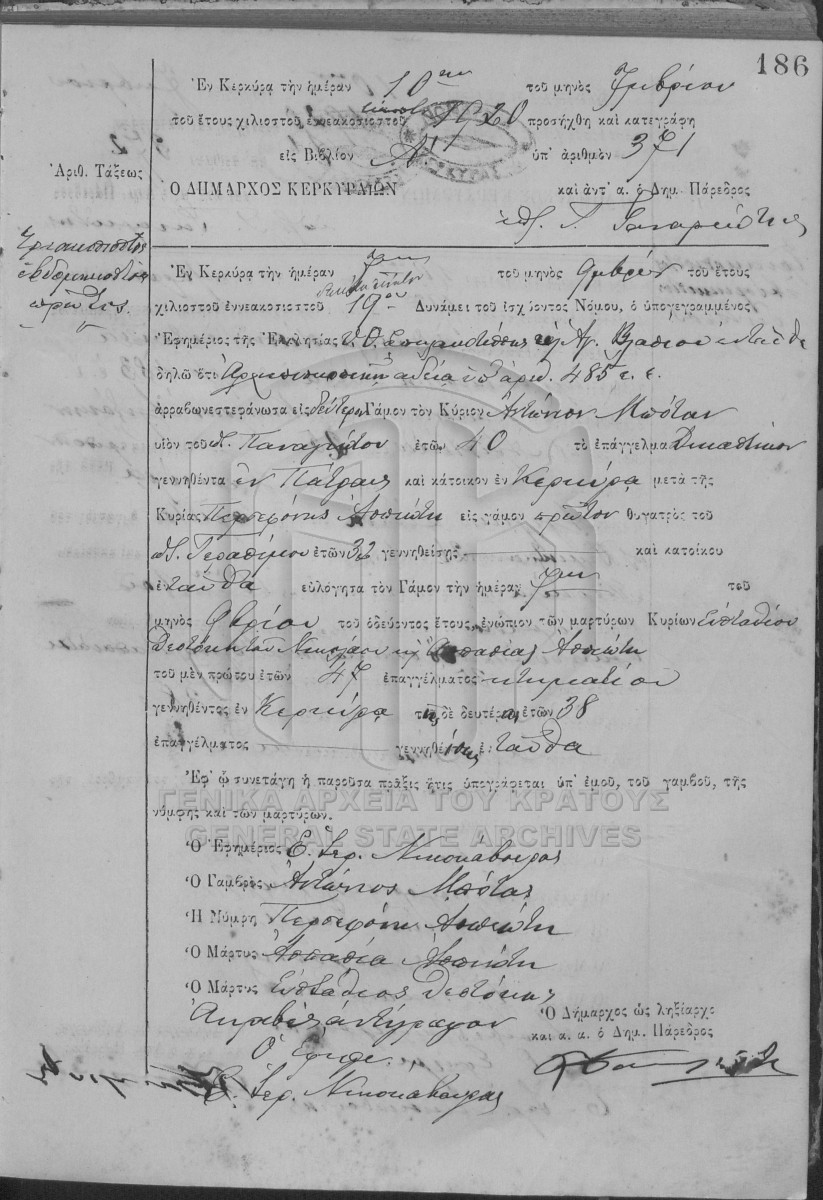 186
Ἐν Κερκύρᾳ τὴν ἡμέραν 10ην τοῦ μηνὸς
τοῦ ἔτους χιλιοστοῦ ἐννεακοσιοστοῦ εἰκοστοῦ 1920 προσήχθη καὶ κατεγράφη
εἰς Βιβλίον Α' ὑπ' ἀριθμὸν 371
Ἀριθ. Τάξεως
Ο ΔΗΜΑΡΧΟΣ ΚΕΡΚΥΡΑΙΩΝ καὶ ἀντ' α. ὁ Δημ. Πάρεδρος
Τριακοσιοστὸς
ἑβδομηκοστὸς
πρῶτος.
Ἐν Κερκύρᾳ τὴν ἡμέραν 7ην τοῦ μηνὸς τοῦ ἔτους
χιλιοστοῦ ἐννεακοσιοστοῦ 19ου Δυνάμει τοῦ ἰσχύοντος Νόμου, ὁ ὑπογεγραμμένος
Ἐφημέριος τῆς Ἐκκλησίας Ἁγ. Βλασίου
δηλῶ ὅτι ἀδείᾳ ὑπ' ἀριθ. 485 ἐ. ἔ.
ἀρραβωνεστεφάνωσα εἰς δεύτερον Γάμον τὸν Κύριον Ἀντώνιον Μπόταν
υἱὸν τοῦ Παναγιώτου ἐτῶν 40 τὸ ἐπάγγελμα Δικαστικὸν
γεννηθέντα ἐν Πάτραις καὶ κάτοικον ἐν Κερκύρᾳ μετὰ τῆς
Κυρίας Περσεφόνης Ἀσπιώτη εἰς γάμον πρῶτον θυγατρὸς τοῦ
Γερασίμου ἐτῶν 32 γεννηθείσης καὶ κατοίκου
ἐνταῦθα εὐλόγησα τὸν Γάμον τὴν ἡμέραν 7ην τοῦ
μηνὸς τοῦ ὁδεύοντος ἔτους, ἐνώπιον τῶν μαρτύρων Κυρίων Εὐσταθίου
Θεοτόκη τοῦ Νικολάου κ' Ἀσπασίας Ἀσπιώτη
τοῦ μὲν πρώτου ἐτῶν 47 ἐπαγγέλματος κτηματίου
γεννηθέντος ἐν Κερκύρᾳ τῆς δὲ δευτέρας ἐτῶν 38
ἐπαγγέλματος γεννηθείσης ἐνταῦθα
Ἐφ' ᾧ συνετάγη ἡ παροῦσα πρᾶξις ἥτις ὑπογράφεται ὑπ' ἐμοῦ, τοῦ γαμβροῦ, τῆς
νύμφης καὶ τῶν μαρτύρων.
ΓΕΝΙΚΑ ΑΡΧΕΙΑ ΤΟΥ ΚΡΑΤΟΥΣ
GENERAL STATE ARCHIVES
Ὁ Ἐφημέριος Ε. Ἱερ. Νικοκάβουρας
Ὁ Γαμβρὸς Ἀντώνιος Μπότας
Ἡ Νύμφη Περσεφόνη Ἀσπιώτη
Ὁ Μάρτυς Ἀσπασία Ἀσπιώτη
Ὁ Μάρτυς Εὐστάθιος Θεοτόκης
Ἀκριβὲς ἀντίγραφον
Ὁ Δήμαρχος ὡς ληξίαρχος
καὶ α. α. ὁ Δημ. Πάρεδρος
Ὁ Ἐφημ.
Ε. Ἱερ. Νικοκάβουρας